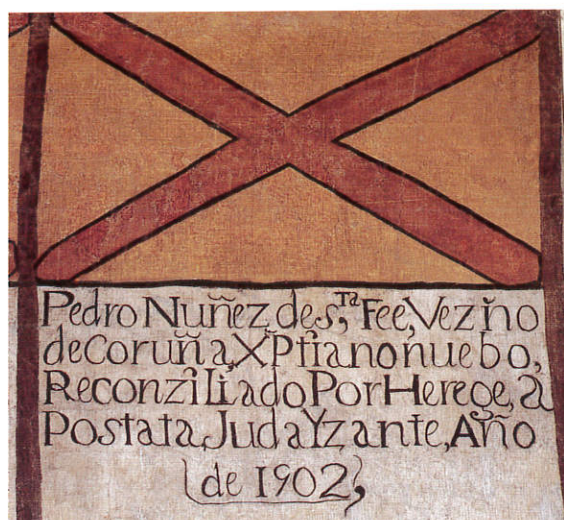 Pedro Nuñez, de s,ᵀᵃ Fee, Vezño
de Coruña, XPtiano nuebo,
Reconziliado Por Herege, a
Postata, JudaYzante, Año
de 1902,